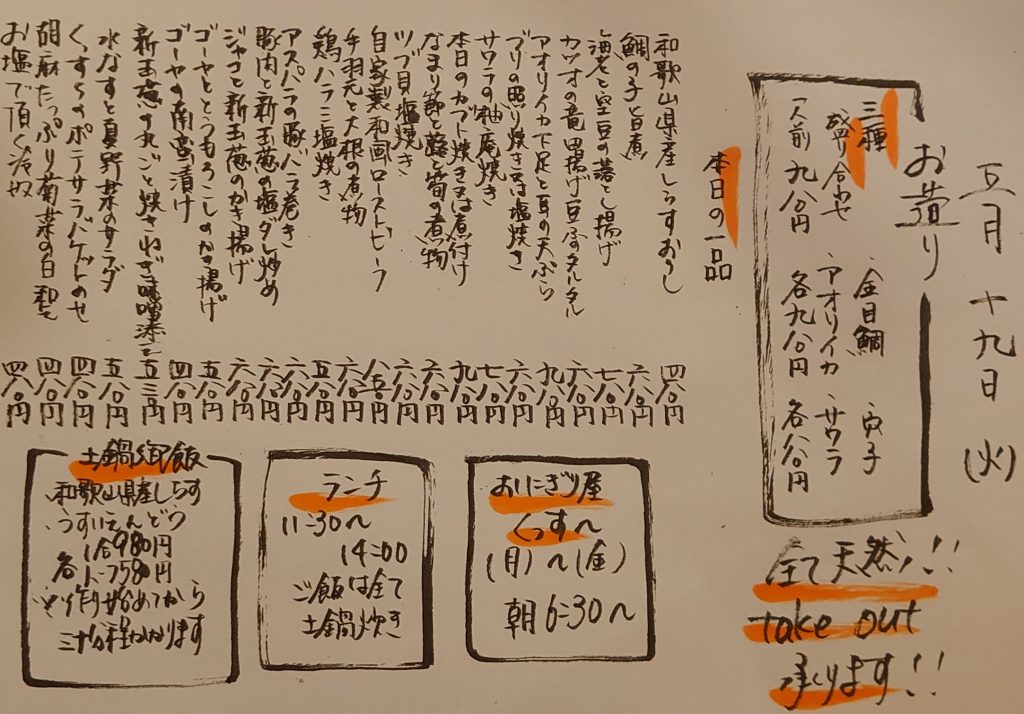 五月十九日(火)
お造り
三種盛り合わせ
一人前 九八〇円
金目鯛 穴子
アオリイカ サワラ
各九八〇円 各八八〇円
全て天然!!
take out
承ります!!
本日の一品
和歌山県産しらすおろし 四八〇円
鯛の子旨煮 六八〇円
海老と空豆の落とし揚げ 七八〇円
カツオの竜田揚げ豆ふのタルタル 六八〇円
アオリイカ下足と耳の天ぷら 九八〇円
ブリの照り焼き又は塩焼き 六八〇円
サワラの柚庵焼き 七八〇円
本日のカブト焼き又は煮付け 九八〇円
なまり節と蕗と筍の煮物 六八〇円
ツブ貝塩焼き 六八〇円
自家製和風ローストビーフ 八五〇円
手羽元と大根の煮物 六八〇円
鶏ハラミ塩焼き 五八〇円
アスパラの豚バラ巻き 六八〇円
豚肉と新玉葱の塩ダレ炒め 六八〇円
ジャコと新玉葱のかき揚げ 六八〇円
ゴーヤととうもろこしのかき揚げ 五八〇円
ゴーヤの南蛮漬け 四八〇円
新玉葱の丸ごと焼きねぎ味噌添え 五三〇円
水なすと夏野菜のサラダ 五八〇円
くっすぅのポテサラバケットのせ 四八〇円
胡麻たっぷり菊菜の白和え 四八〇円
お塩で頂く冷奴 四八〇円
おにぎり屋
くっす〜
(月)〜(金)
朝6:30〜
ランチ
11:30〜
14:00
ご飯は全て
土鍋炊き
土鍋御飯
和歌山県産しらす
うすいえんどう
各 1合980円
1.5 1580円
作り始めてから
三十分程かかります